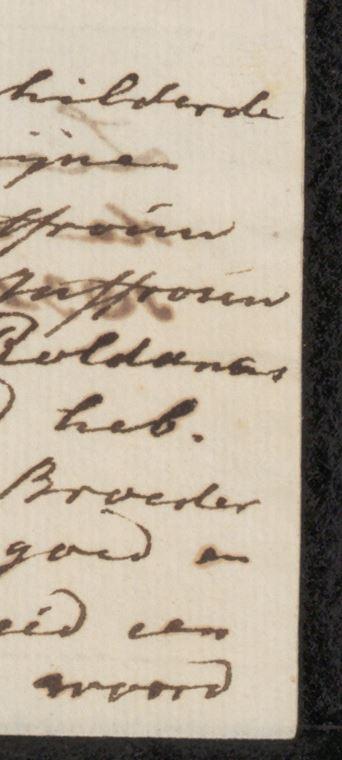 hilderde
ijne
ffrouw
Juffrouw
Roldanus
heb.
Broeder
goed en
eid een
woord